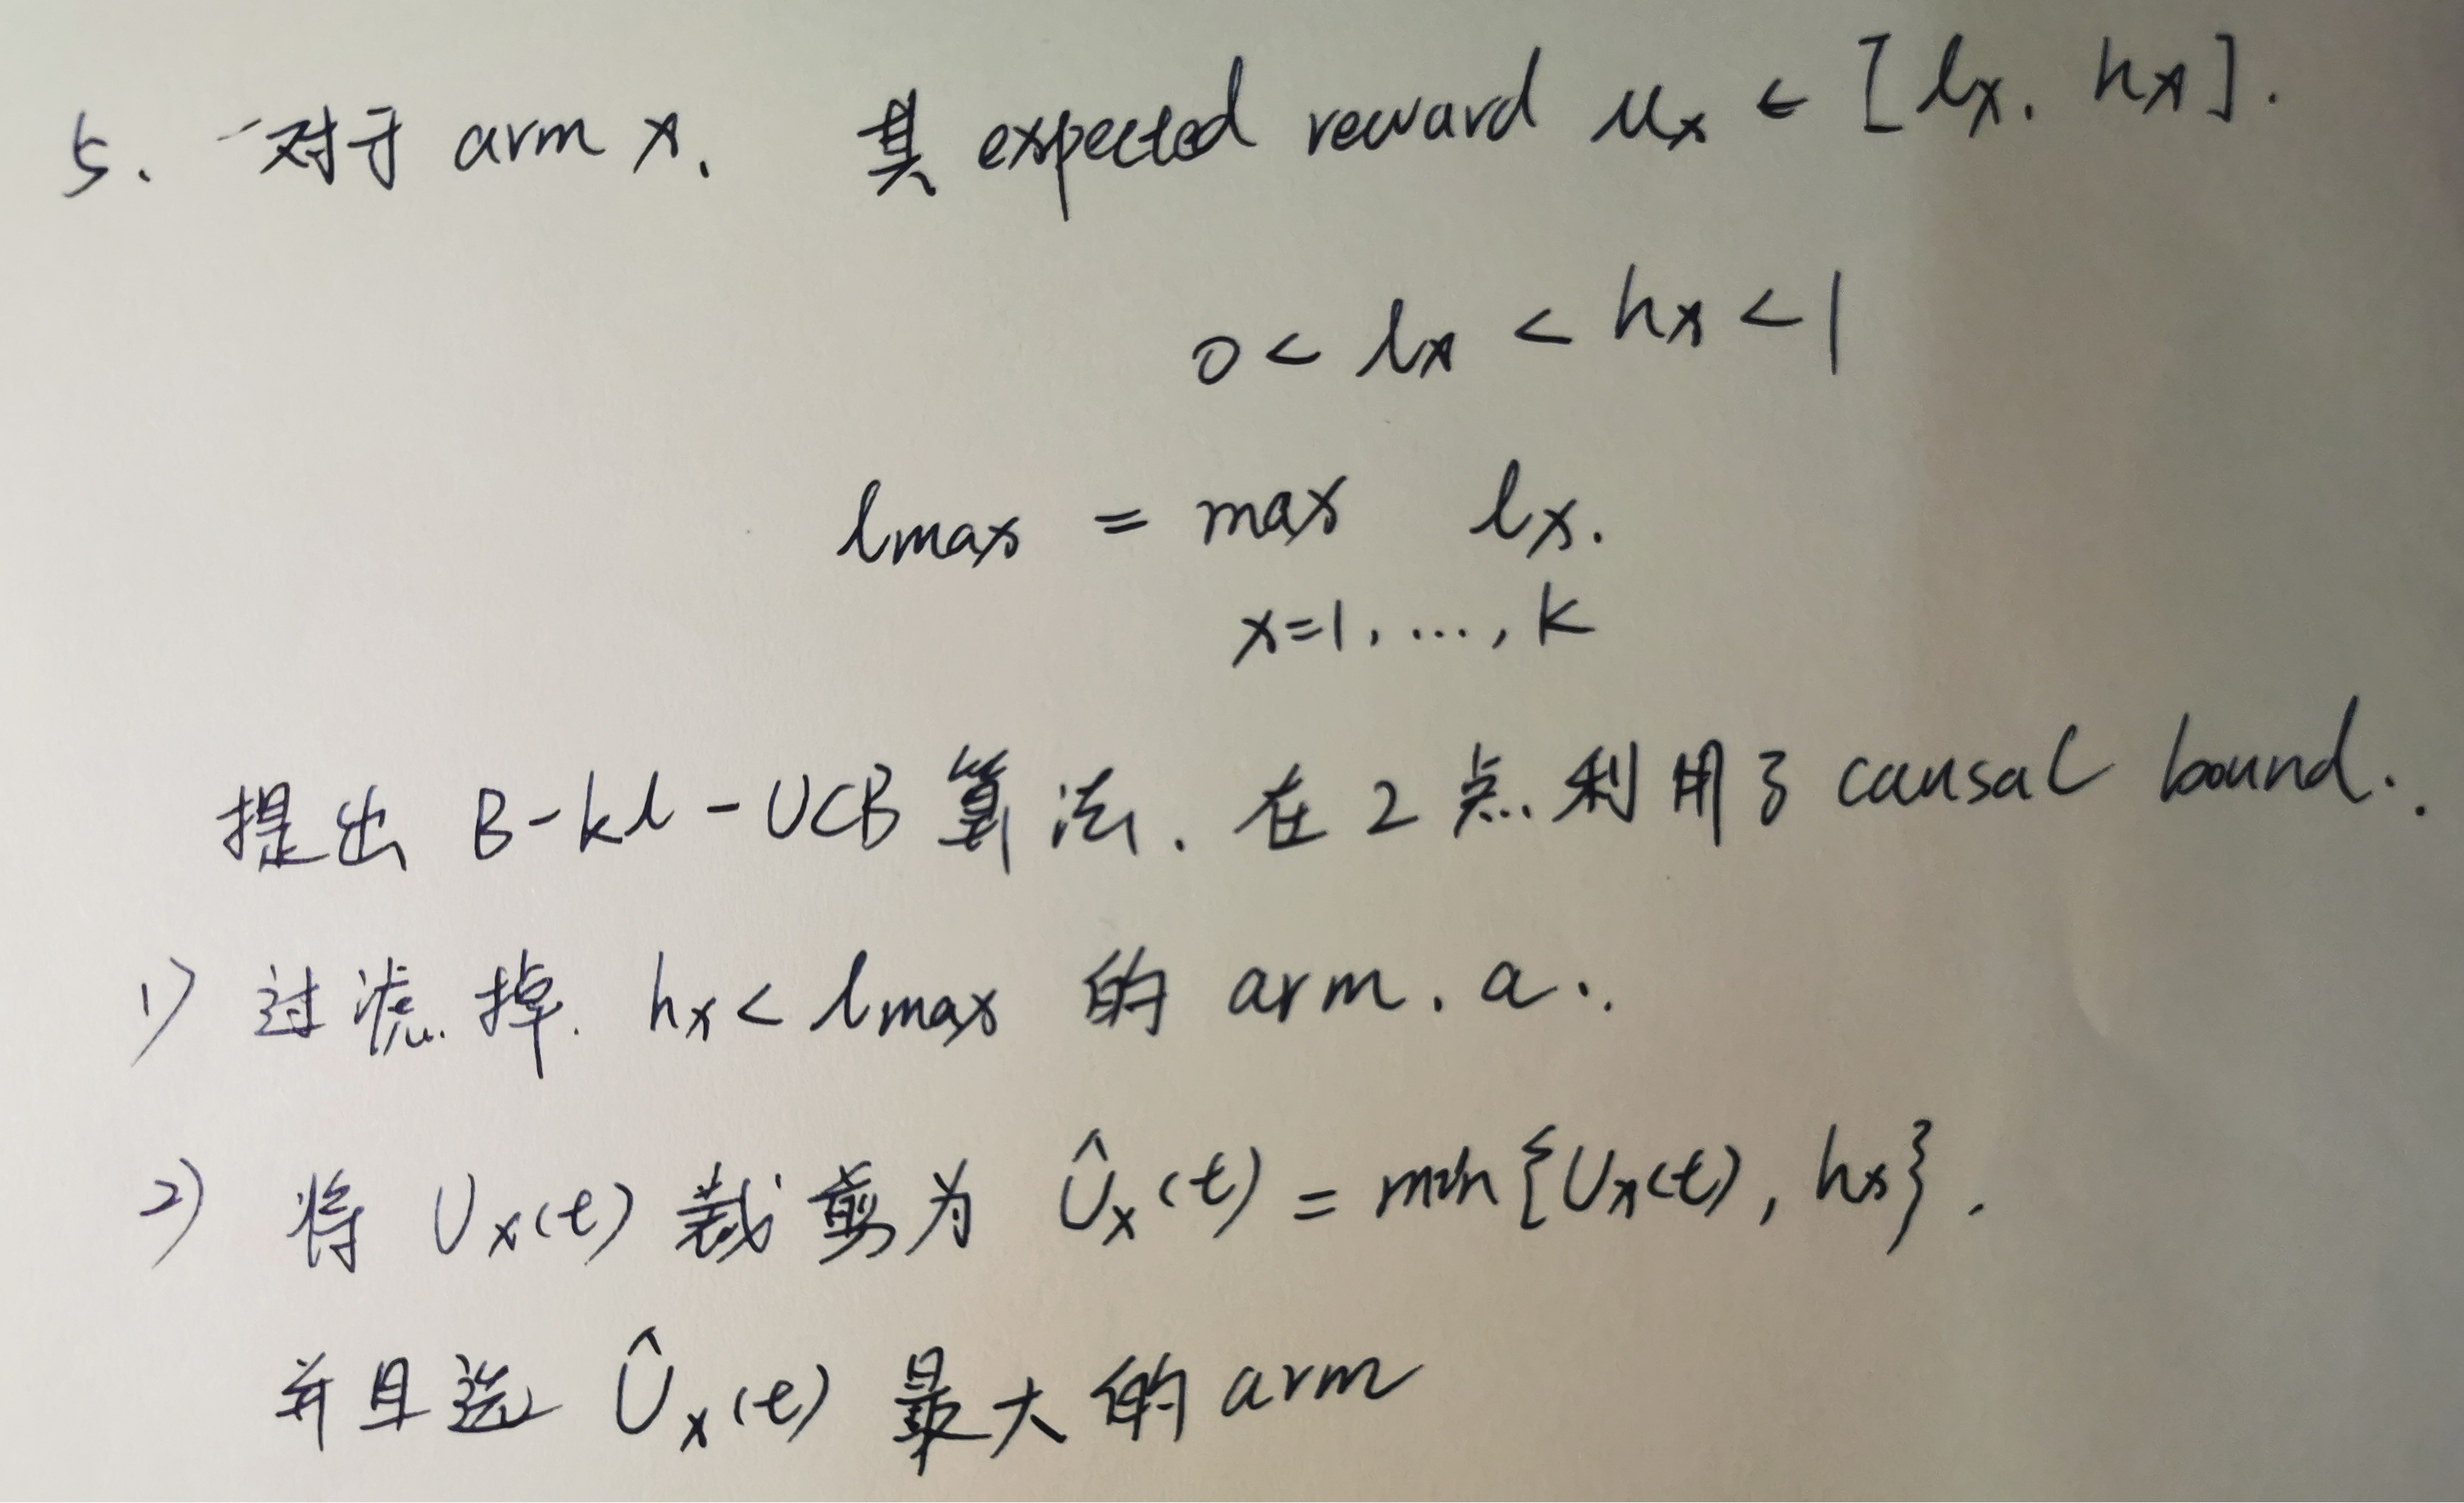 5. 对于 arm x. 其 expected reward μx ∈ [lx, hx].
0 < lx < hx < 1
lmax = max lx.
x=1, ..., k
提出 B-kl-UCB 算法. 在 2 点. 利用了 causal bound.
1) 过滤掉. hx < lmax 的 arm. a.
2) 将 Ux(t) 裁剪为 Ûx(t) = min{Ux(t), hx}.
并且选 Ûx(t) 最大的 arm